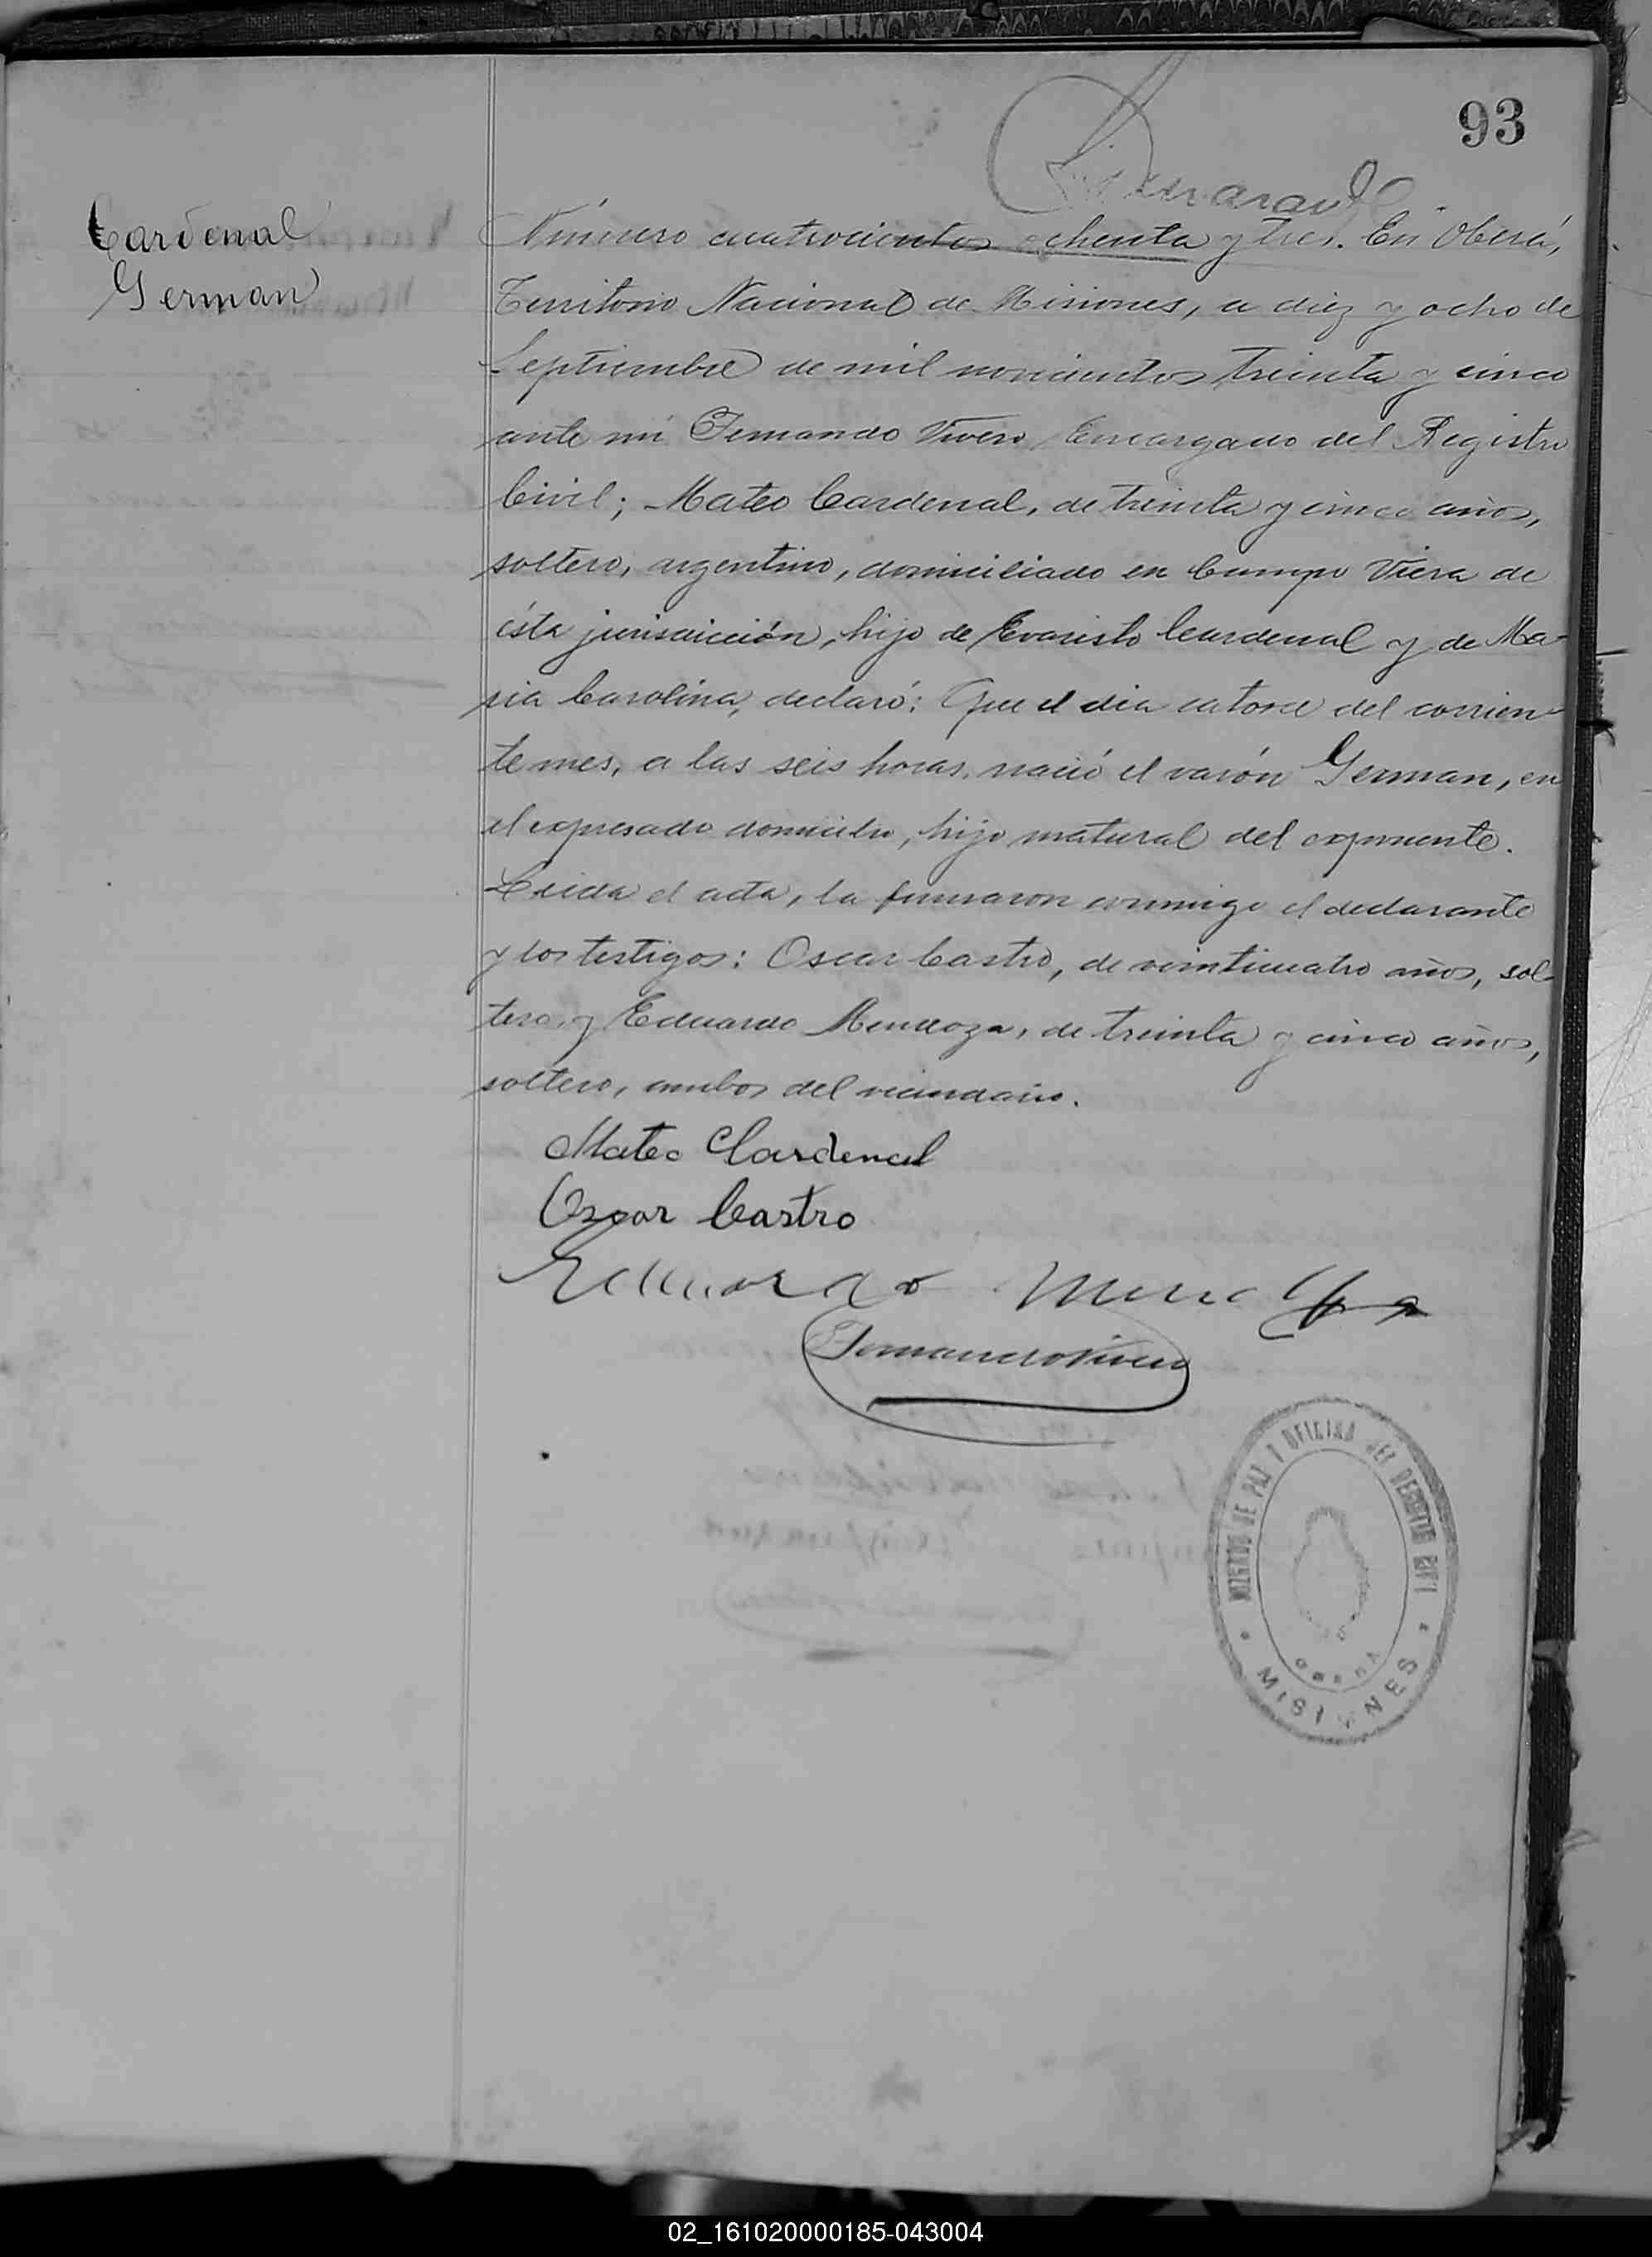 93
Cardenal
German
Número cuatrocientos ochenta y tres. En Oberá,
Territorio Nacional de Misiones, a diez y ocho de
Septiembre de mil novecientos treinta y cinco
ante mí Fernando Vivero Encargado del Registro
Civil; Mateo Cardenal, de treinta y cinco años,
soltero, argentino, domiciliado en Campo Viera de
ésta jurisdicción, hijo de Evaristo Cardenal y de Ma-
ria Carolina, declaró: Que el dia catorce del corrien-
te mes, a las seis horas, nació el varón German, en
el expresado domicilio, hijo natural del exponente.
Leida el acta, la firmaron conmigo el declarante
y los testigos: Oscar Castro, de veinticuatro años, sol-
tero, y Eduardo Mendoza, de treinta y cinco años,
soltero, ambos del vecindario.
Mateo Cardenal
Oscar Castro
Eduardo Mendoza
Fernando Vivero
JUZGADO DE PAZ Y OFICINA DEL REGISTRO CIVIL
OBERÁ
MISIONES
02_161020000185-043004